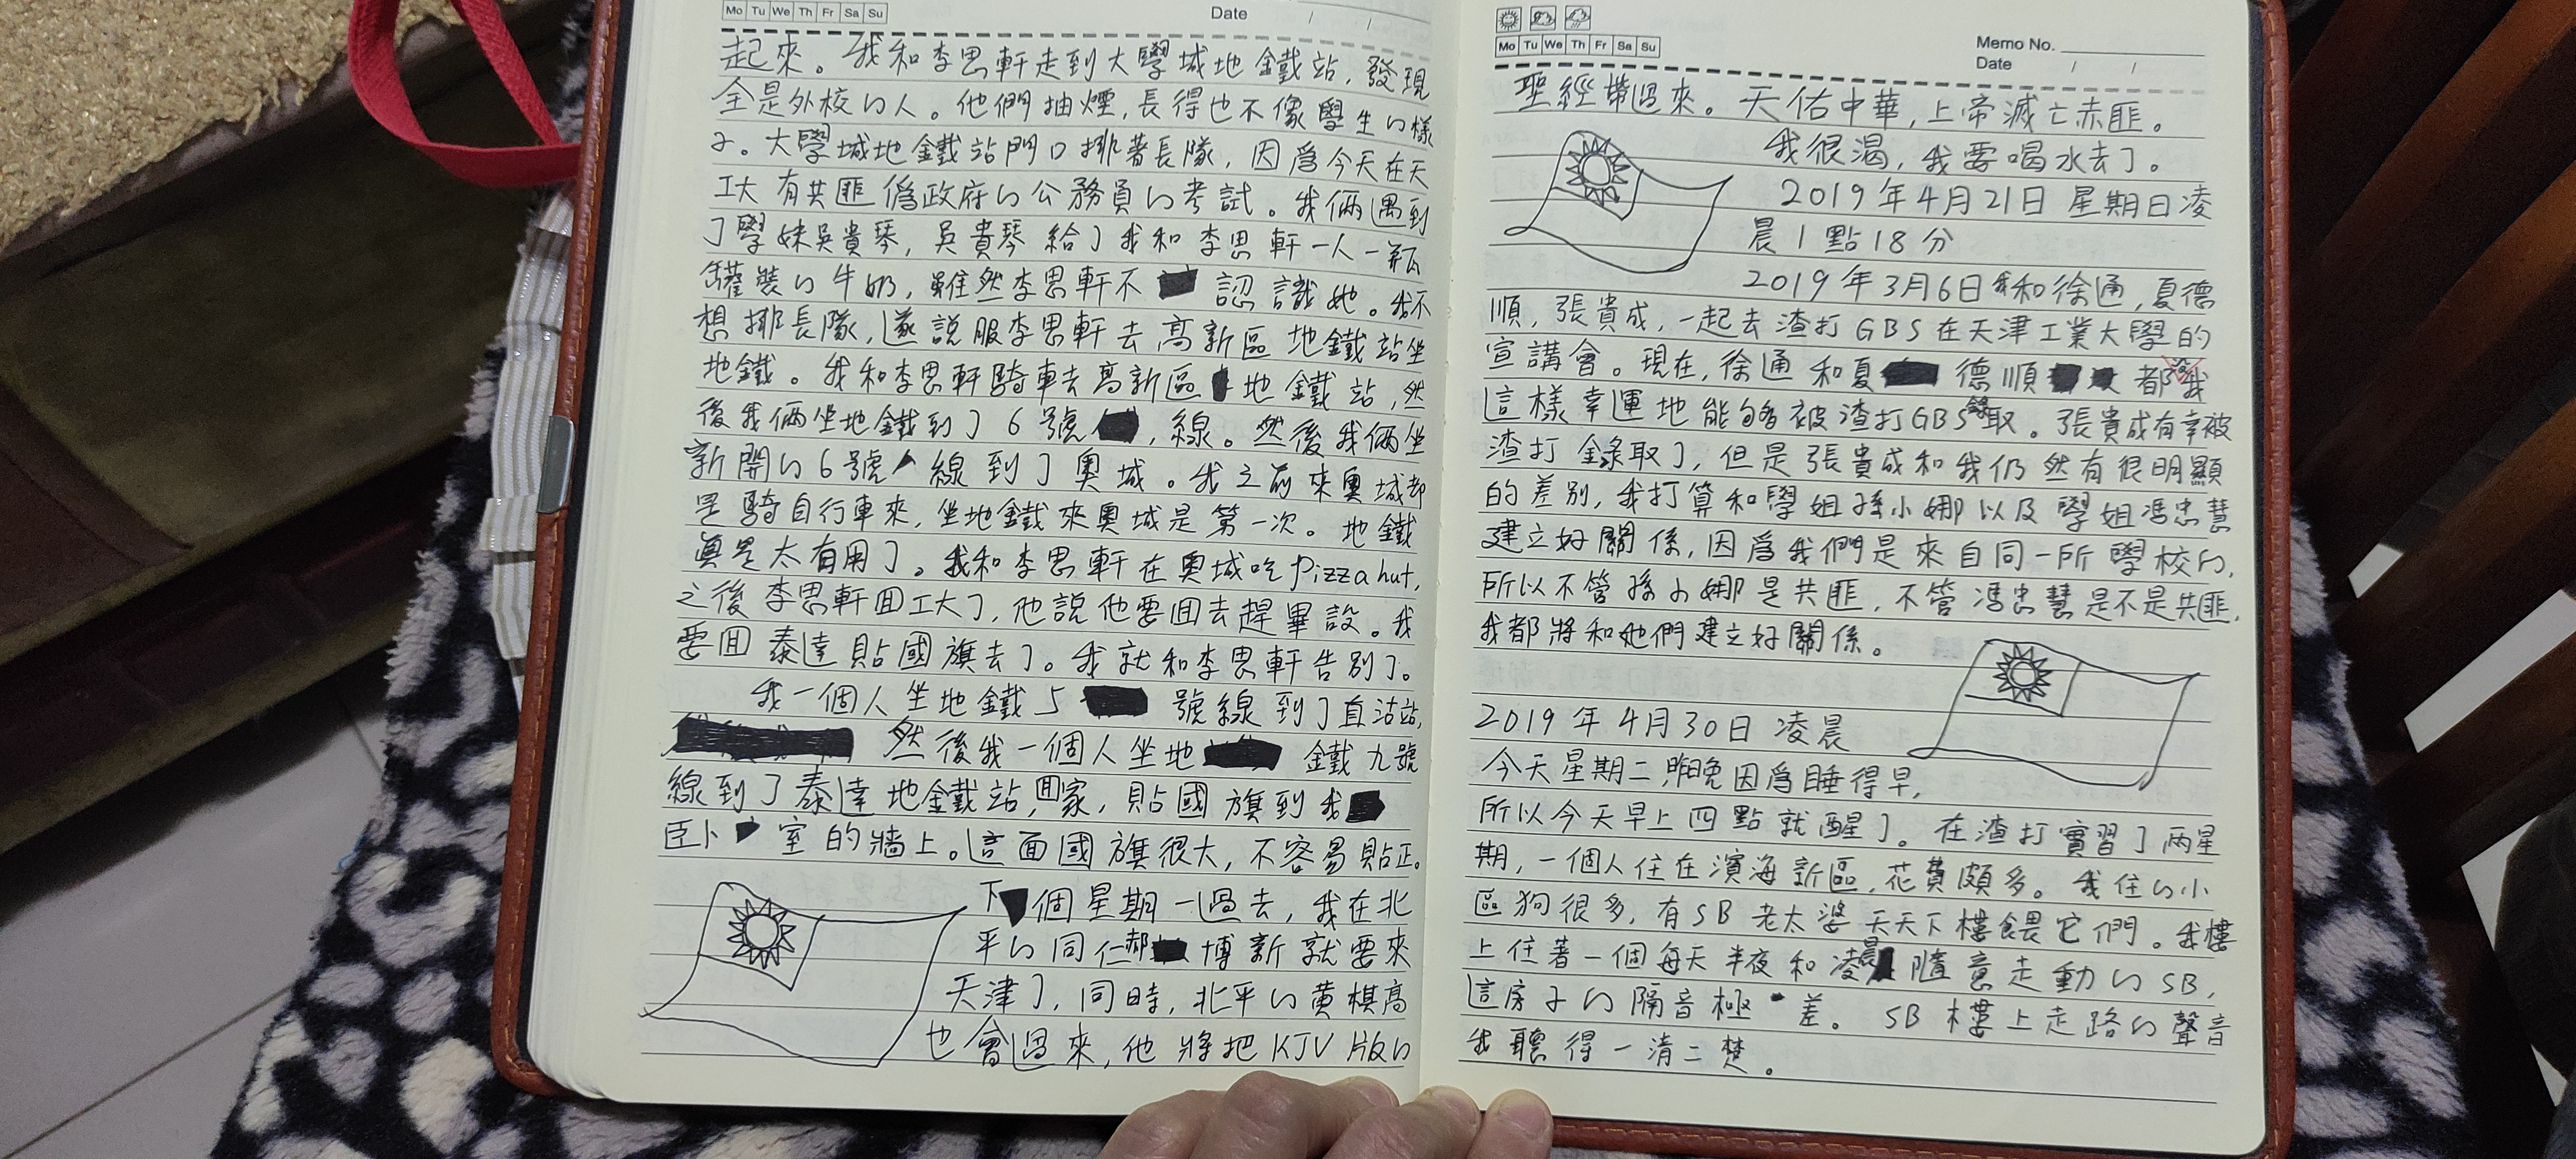 Mo Tu We Th Fr Sa Su
Date / /
起來。我和李思軒走到大學城地鐵站,發現
全是外校的人。他們抽煙,長得也不像學生的樣
子。大學城地鐵站門口排著長隊,因爲今天在天
工大有共匪僞政府的公務員的考試。我倆遇到
了學妹吳貴琴,吳貴琴給了我和李思軒一人一瓶
罐裝的牛奶,雖然李思軒不認識她。我不
想排長隊,遂說服李思軒去高新區地鐵站坐
地鐵。我和李思軒騎車去高新區地鐵站,然
後我倆坐地鐵到了6號,線。然後我倆坐
新開的6號線到了奧城。我之前來奧城都
是騎自行車來,坐地鐵來奧城是第一次。地鐵
真是太有用了。我和李思軒在奧城吃pizza hut,
之後李思軒囬工大了,他說他要囬去趕畢設。我
要囬泰達貼國旗去了。我就和李思軒告别了。
我一個人坐地鐵5號線到了直沽站,
然後我一個人坐地鐵九號
線到了泰達地鐵站,囬家,貼國旗到我
臥室的牆上。這面國旗很大,不容易貼正。
下個星期一過去,我在北
平的同仁郝博新就要來
天津了,同時,北平的黄棋高
也會過來,他將把KJV版的
Mo Tu We Th Fr Sa Su
Memo No.
Date / /
聖經帶過來。天佑中華,上帝滅亡赤匪。
我很渴,我要喝水去了。
2019年4月21日星期日凌
晨1點18分
2019年3月6日我和徐通,夏德
順,張貴成,一起去渣打GBS在天津工業大學的
宣講會。現在,徐通和夏德順都没我
這樣幸運地能够被渣打GBS錄取。張貴成有幸被
渣打錄取了,但是張貴成和我仍然有很明顯
的差别,我打算和學姐孫小娜以及學姐馮忠慧
建立好關係,因爲我們是來自同一所學校的,
所以不管孫小娜是共匪,不管馮忠慧是不是共匪,
我都將和她們建立好關係。
2019年4月30日凌晨
今天星期二,昨晚因爲睡得早,
所以今天早上四點就醒了。在渣打實習了兩星
期,一個人住在濱海新區,花費頗多。我住的小
區狗很多,有SB老太婆天天下樓餵它們。我樓
上住著一個每天半夜和凌晨隨意走動的SB,
這房子的隔音極差。SB樓上走路的聲音
我聽得一清二楚。